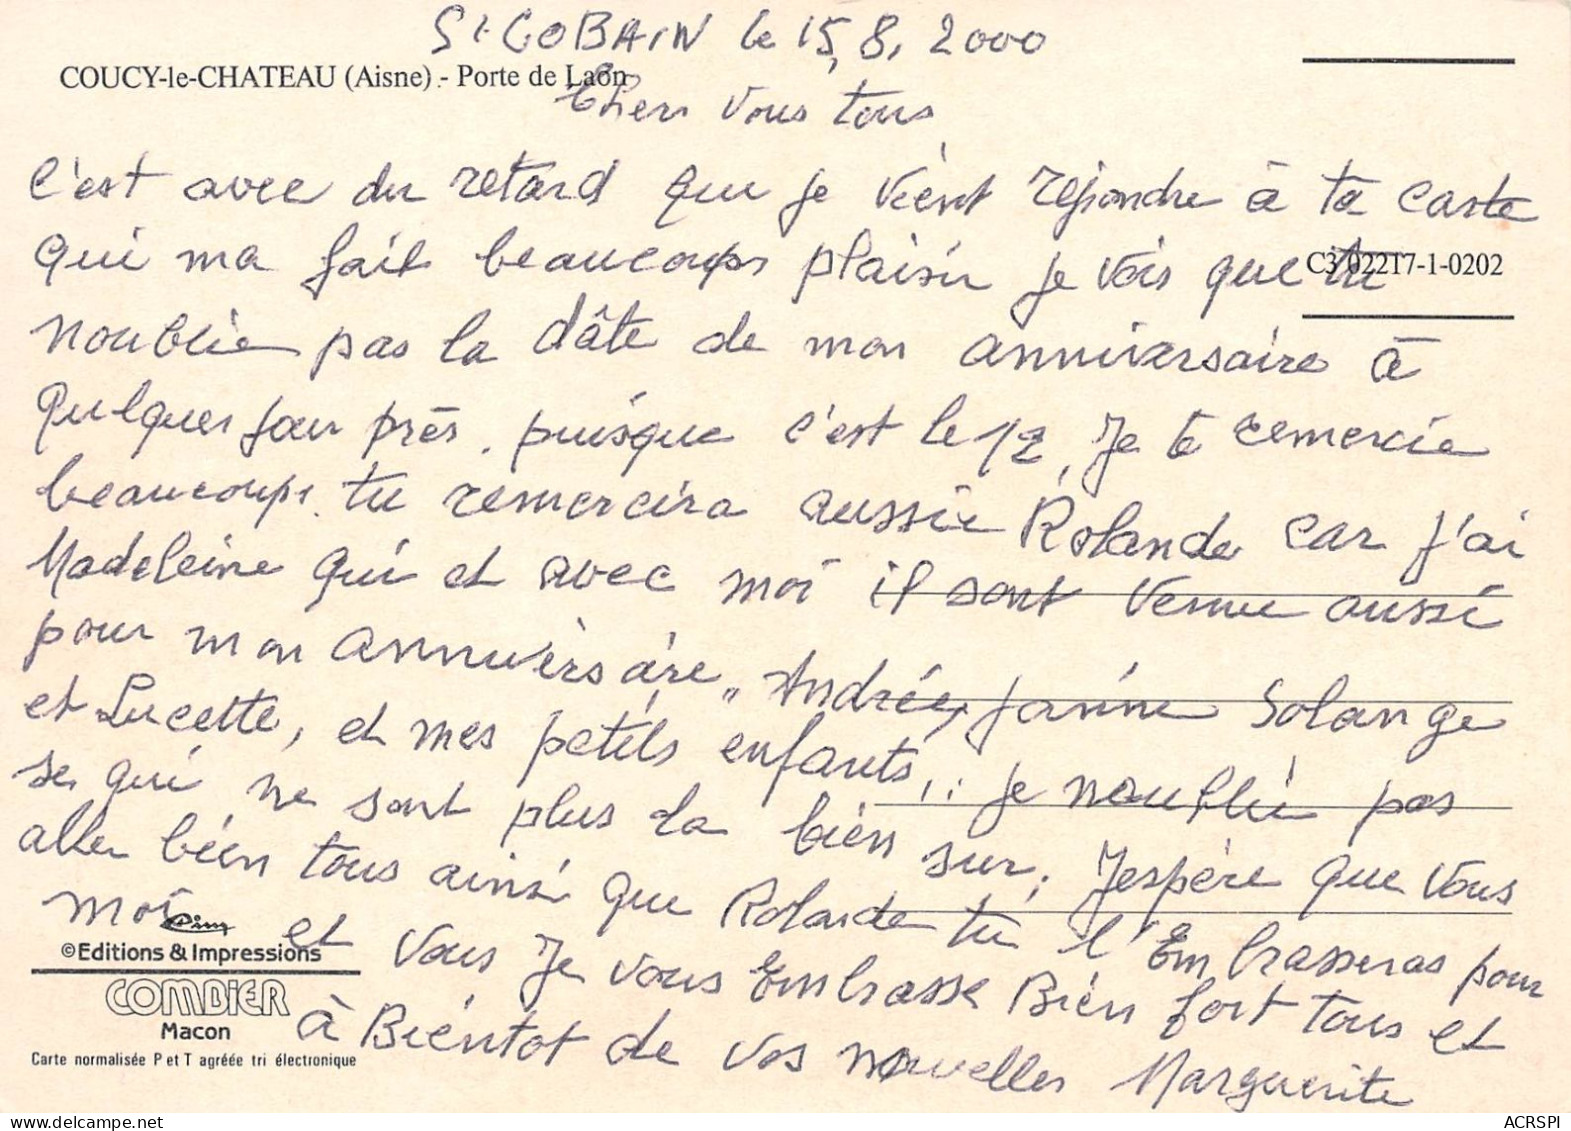 St GOBAIN le 15, 8, 2000
COUCY-le-CHATEAU (Aisne) - Porte de Laon
Chers Vous tous
C'est avec du retard que je vient réjondre à ta carte
qui ma fait beaucoups plaisir je vois que tu
C3 02217-1-0202
noublie pas la dâte de mon anniversaire à
quelques jour près. puisque c'est le 12, Je te remercie
beaucoups. tu remercira aussie Rolande car j'ai
Madeleine qui et avec moi il sont venue aussi
pour mon anniversaire,, Andrée, Janine Solange
et Lucette, et mes petits enfants,.. je noublie pas
se qui ne sont plus la bien sur, J'espère que vous
aller bien tous ainsi que Rolande tu l'Embrasseras pour
moi et vous Je vous Embrasse Bien fort tous et
©Editions & Impressions
COMBIER
Macon
à Bientot de vos nouvelles Marguerite
Carte normalisée P et T agréée tri électronique
ACRSPI